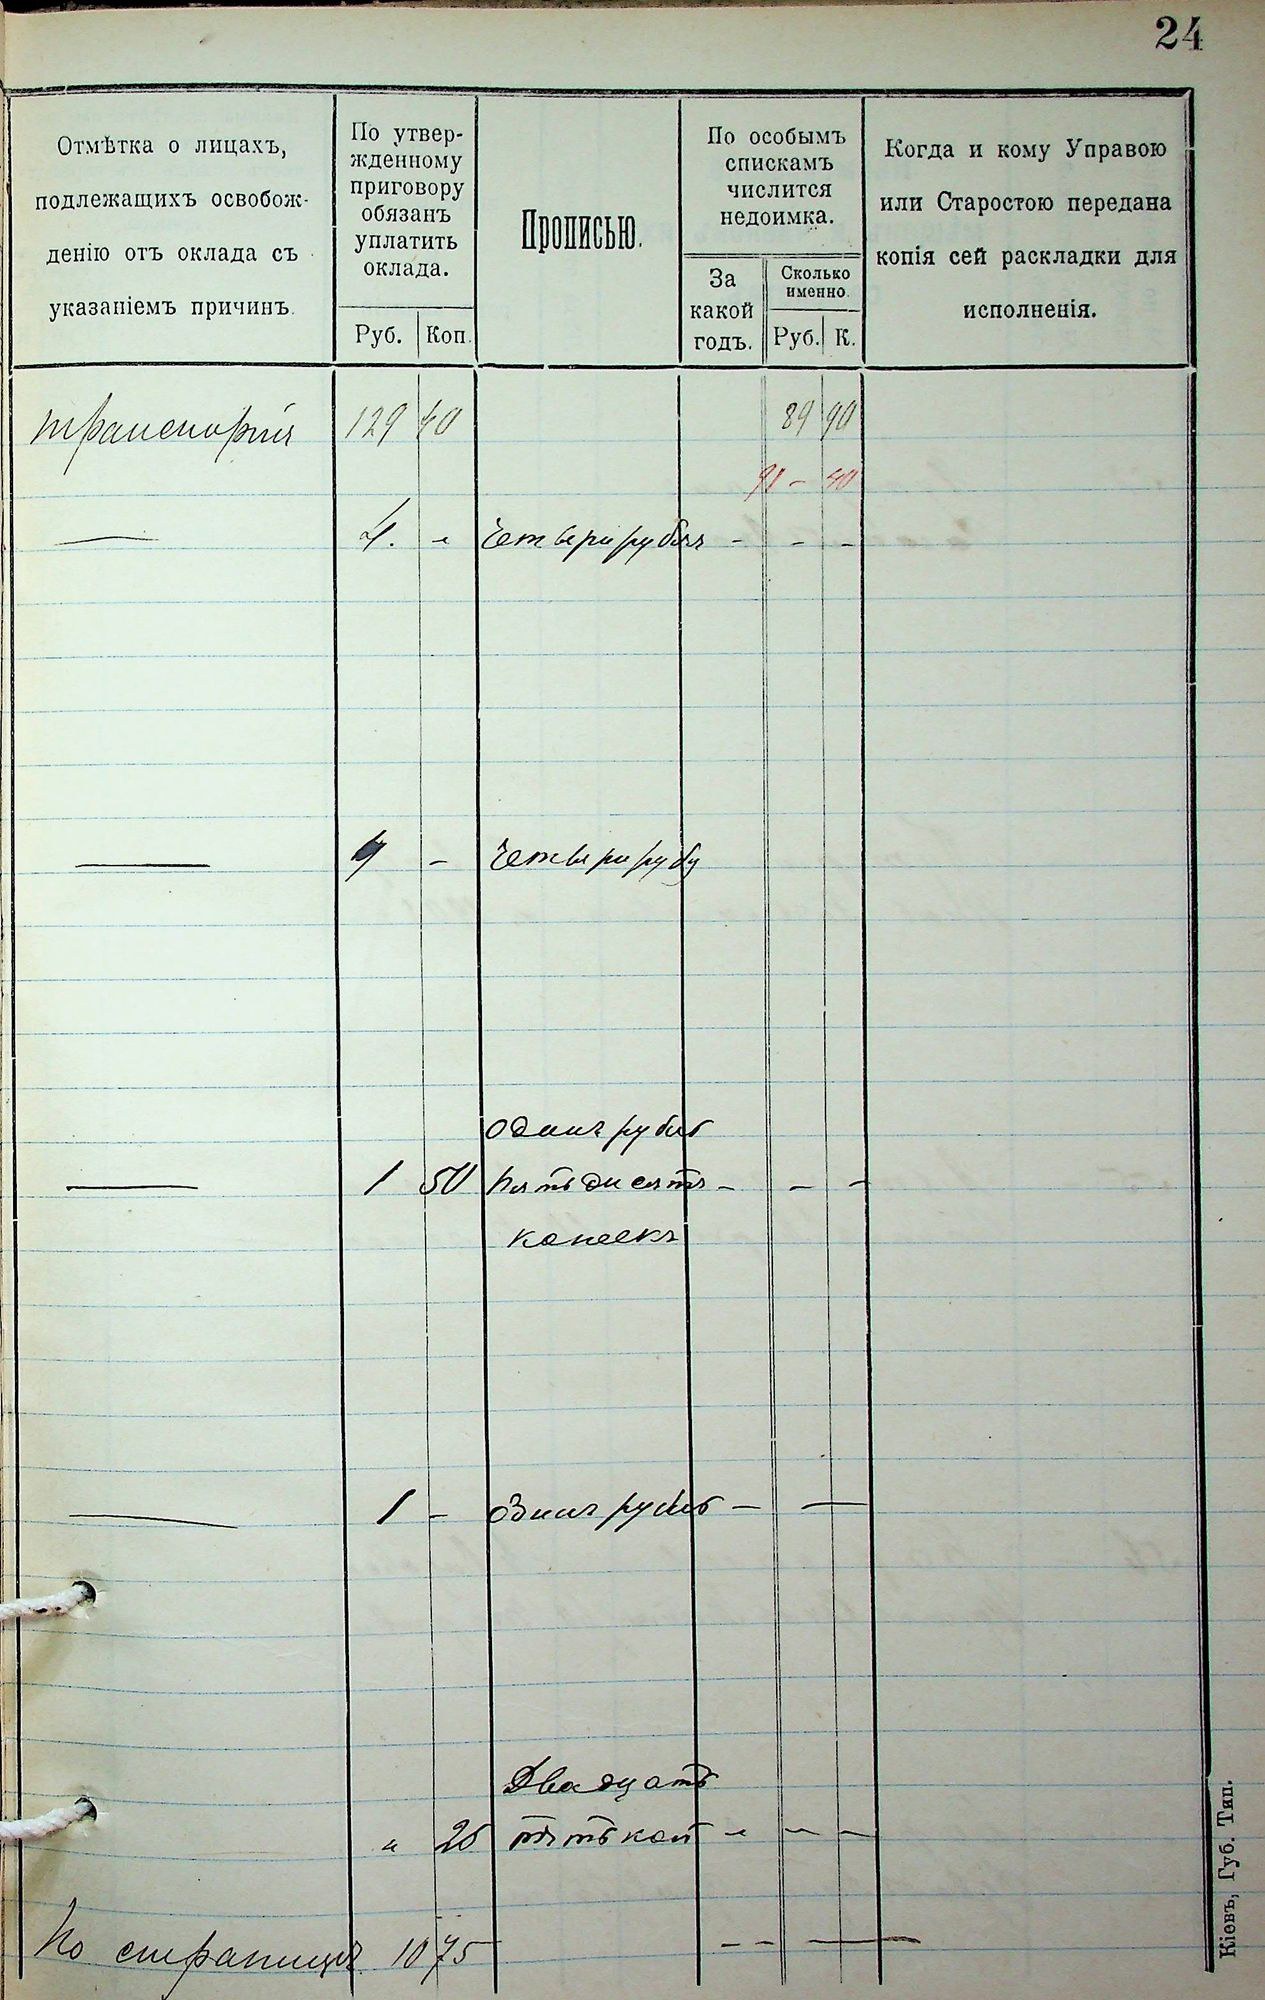 24
Отмѣтка о лицахъ,
подлежащихъ освобож-
денію отъ оклада съ
указаніемъ причинъ.
По утвер-
жденному
приговору
обязанъ
уплатить
оклада.
Руб. Коп.
Прописью.
По особымъ
спискамъ
числится
недоимка.
За
какой
годъ.
Сколько
именно.
Руб. К.
Когда и кому Управою
или Старостою передана
копія сей раскладки для
исполненія.
129 40 89 90
91 - 40
— 4. " четыри рубля - - -
— 4 - четыри руб
одинъ рубль
— 1 50 пятьдисятъ - - -
копеекъ
— 1 - одинъ рубль - —
Двадцать
" 25 пять коп - - -
По страницѣ 10 75 - - —
Кіевъ, Губ. Тип.